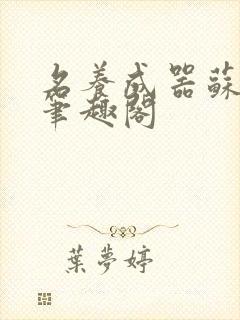 名養成器蘇
筆趣閣
葉夢婷